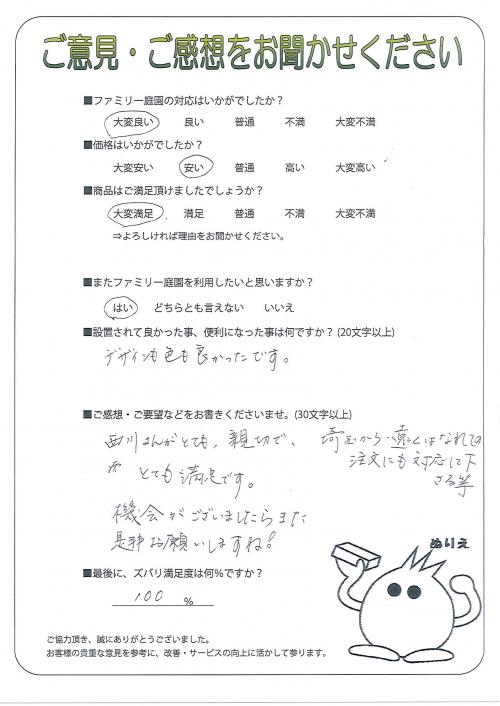 ご意見・ご感想をお聞かせください
■ファミリー庭園の対応はいかがでしたか？
大変良い 良い 普通 不満 大変不満
■価格はいかがでしたか？
大変安い 安い 普通 高い 大変高い
■商品はご満足頂けましたでしょうか？
大変満足 満足 普通 不満 大変不満
⇒よろしければ理由をお聞かせください。
■またファミリー庭園を利用したいと思いますか？
はい どちらとも言えない いいえ
■設置されて良かった事、便利になった事は何ですか？(20文字以上)
デザインも色も良かったです。
■ご感想・ご要望などをお書きくださいませ。(30文字以上)
西川さんがとても、親切で、
埼玉から遠くはなれての
注文にも対応に下
さる等
とても満足です。
機会がございましたらまた
是非お願いしますね!
■最後に、ズバリ満足度は何％ですか？
100 %
ぬりえ
ご協力頂き、誠にありがとうございました。
お客様の貴重な意見を参考に、改善・サービスの向上に活かして参ります。